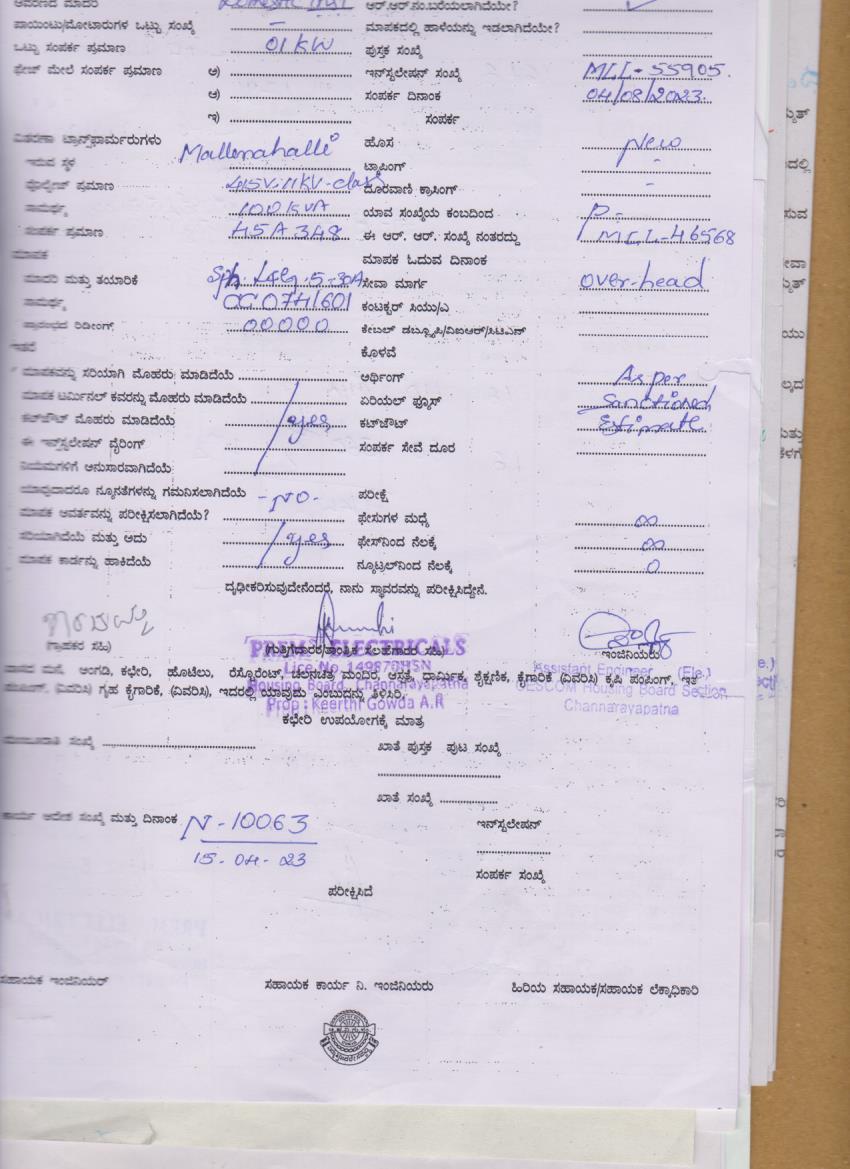 ಆವರಣದ ಮಾದರಿ Domestic ಆರ್.ಆರ್.ನಂ.ಬರೆಯಲಾಗಿದೆಯೇ?
ಪಾಯಿಂಟು/ಮೋಟಾರುಗಳ ಒಟ್ಟು ಸಂಖ್ಯೆ - ಮಾಪಕದಲ್ಲಿ ಹಾಳೆಯನ್ನು ಇಡಲಾಗಿದೆಯೇ?
ಒಟ್ಟು ಸಂಪರ್ಕ ಪ್ರಮಾಣ 01 KW ಪುಸ್ತಕ ಸಂಖ್ಯೆ
ಫೇಜ್ ಮೇಲೆ ಸಂಪರ್ಕ ಪ್ರಮಾಣ ಅ) ಇನ್‌ಸ್ಟಲೇಷನ್ ಸಂಖ್ಯೆ MLL-55905.
ಆ) ಸಂಪರ್ಕ ದಿನಾಂಕ 04/08/2023.
ಇ) ಸಂಪರ್ಕ
ವಿತರಣಾ ಟ್ರಾನ್ಸ್‌ಫಾರ್ಮರುಗಳು ಹೊಸ New
ಇರುವ ಸ್ಥಳ Mallenahalli ಟ್ಯಾಪಿಂಗ್ -
ವೋಲ್ಟೇಜ್ ಪ್ರಮಾಣ 415V-11KV-class ದೂರವಾಣಿ ಕ್ರಾಸಿಂಗ್ -
ಸಾಮರ್ಥ್ಯ 100 KVA ಯಾವ ಸಂಖ್ಯೆಯ ಕಂಬದಿಂದ P-
ಸಂಪರ್ಕ ಪ್ರಮಾಣ 45A348 ಈ ಆರ್. ಆರ್. ಸಂಖ್ಯೆ ನಂತರದ್ದು MLL-46568
ಮಾಪಕ ಮಾಪಕ ಓದುವ ದಿನಾಂಕ
ಮಾದರಿ ಮತ್ತು ತಯಾರಿಕೆ Sph. L&G. 5-30A ಸೇವಾ ಮಾರ್ಗ over-head
ಸಾಮರ್ಥ್ಯ CC0741601 ಕಂಟಕ್ಟರ್ ಸಿಯು/ಎ
ಪ್ರಾರಂಭದ ರಿಡೀಂಗ್ 00000 ಕೇಬಲ್ ಡಬ್ಲ್ಯೂಪಿ/ವಿಐಆರ್/ಸಿಟಿಎಸ್
ಇತರೆ ಕೊಳವೆ
ಮಾಪಕವನ್ನು ಸರಿಯಾಗಿ ಮೊಹರು ಮಾಡಿದೆಯೆ ಅರ್ಥಿಂಗ್ As per
ಮಾಪಕ ಟರ್ಮಿನಲ್ ಕವರನ್ನು ಮೊಹರು ಮಾಡಿದೆಯೆ ಏರಿಯಲ್ ಫ್ಯೂಸ್ Sanctioned
ಕಟ್‌ಔಟ್ ಮೊಹರು ಮಾಡಿದೆಯೆ yes ಕಟ್‌ಔಟ್ Estimate
ಈ ಇನ್‌ಸ್ಟಲೇಷನ್ ವೈರಿಂಗ್ ಸಂಪರ್ಕ ಸೇವೆ ದೂರ
ನಿಯಮಗಳಿಗೆ ಅನುಸಾರವಾಗಿದೆಯೆ
ಯಾವುದಾದರೂ ನ್ಯೂನತೆಗಳನ್ನು ಗಮನಿಸಲಾಗಿದೆಯೆ -NO- ಪರೀಕ್ಷೆ
ಮಾಪಕ ಆವರ್ತವನ್ನು ಪರೀಕ್ಷಿಸಲಾಗಿದೆಯೆ? ಫೇಸುಗಳ ಮಧ್ಯೆ ∞
ಸರಿಯಾಗಿದೆಯೆ ಮತ್ತು ಅದು yes ಫೇಸ್‌ನಿಂದ ನೆಲಕ್ಕೆ ∞
ಮಾಪಕ ಕಾರ್ಡನ್ನು ಹಾಕಿದೆಯೆ ನ್ಯೂಟ್ರಲ್‌ನಿಂದ ನೆಲಕ್ಕೆ 0
ದೃಢೀಕರಿಸುವುದೇನೆಂದರೆ, ನಾನು ಸ್ಥಾವರವನ್ನು ಪರೀಕ್ಷಿಸಿದ್ದೇನೆ.
(ಗ್ರಾಹಕರ ಸಹಿ) (ಗುತ್ತಿಗೆದಾರರ/ತಾಂತ್ರಿಕ ಸಲಹೆಗಾರರ ಸಹಿ) ಇಂಜಿನಿಯರು
PREMA ELECTRICALS
Lice No 149870HSN
Housing Board, Channarayapatna
Prop : Keerthi Gowda A.R
Assistant Engineer (Ele.)
CESCOM Housing Board Section
Channarayapatna
ವಾಸದ ಮನೆ, ಅಂಗಡಿ, ಕಛೇರಿ, ಹೊಟೆಲು, ರೆಸ್ಟೊರೆಂಟ್, ಚಲನಚಿತ್ರ ಮಂದಿರ, ಆಸ್ಪತ್ರೆ, ಧಾರ್ಮಿಕ, ಶೈಕ್ಷಣಿಕ, ಕೈಗಾರಿಕೆ (ವಿವರಿಸಿ) ಕೃಷಿ ಪಂಪಿಂಗ್, ಇತರೆ
(ವಿವರಿಸಿ) ಗೃಹ ಕೈಗಾರಿಕೆ, (ವಿವರಿಸಿ), ಇದರಲ್ಲಿ ಯಾವುದು ಎಂಬುದನ್ನು ತಿಳಿಸಿರಿ.
ಕಛೇರಿ ಉಪಯೋಗಕ್ಕೆ ಮಾತ್ರ
ಮಂಜೂರಾತಿ ಸಂಖ್ಯೆ ಖಾತೆ ಪುಸ್ತಕ ಪುಟ ಸಂಖ್ಯೆ
ಖಾತೆ ಸಂಖ್ಯೆ
ಕಾರ್ಯ ಆದೇಶ ಸಂಖ್ಯೆ ಮತ್ತು ದಿನಾಂಕ N-10063 ಇನ್‌ಸ್ಟಲೇಷನ್
15-04-23
ಸಂಪರ್ಕ ಸಂಖ್ಯೆ
ಪರೀಕ್ಷಿಸಿದೆ
ಸಹಾಯಕ ಇಂಜಿನಿಯರ್ ಸಹಾಯಕ ಕಾರ್ಯ ನಿ. ಇಂಜಿನಿಯರು ಹಿರಿಯ ಸಹಾಯಕ/ಸಹಾಯಕ ಲೆಕ್ಕಾಧಿಕಾರಿ